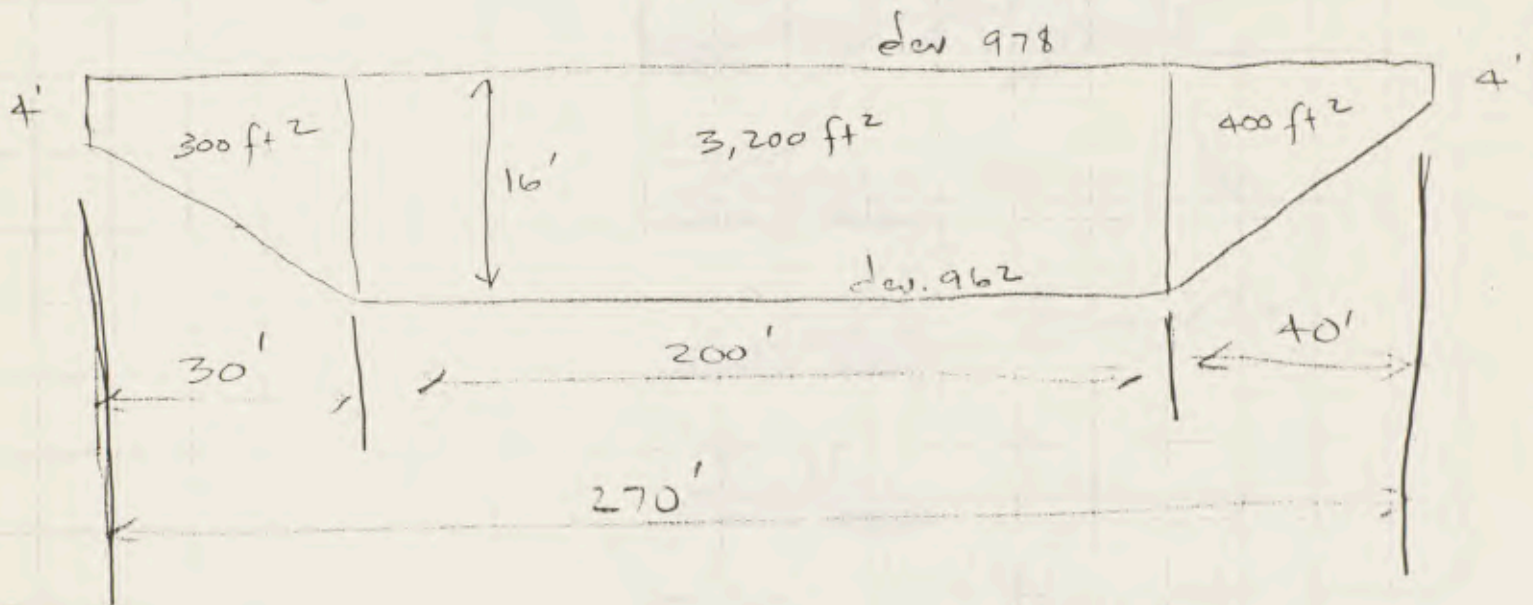 elev 978
4'
4'
300 ft²
3,200 ft²
400 ft²
16'
elev. 962
30'
200'
40'
270'